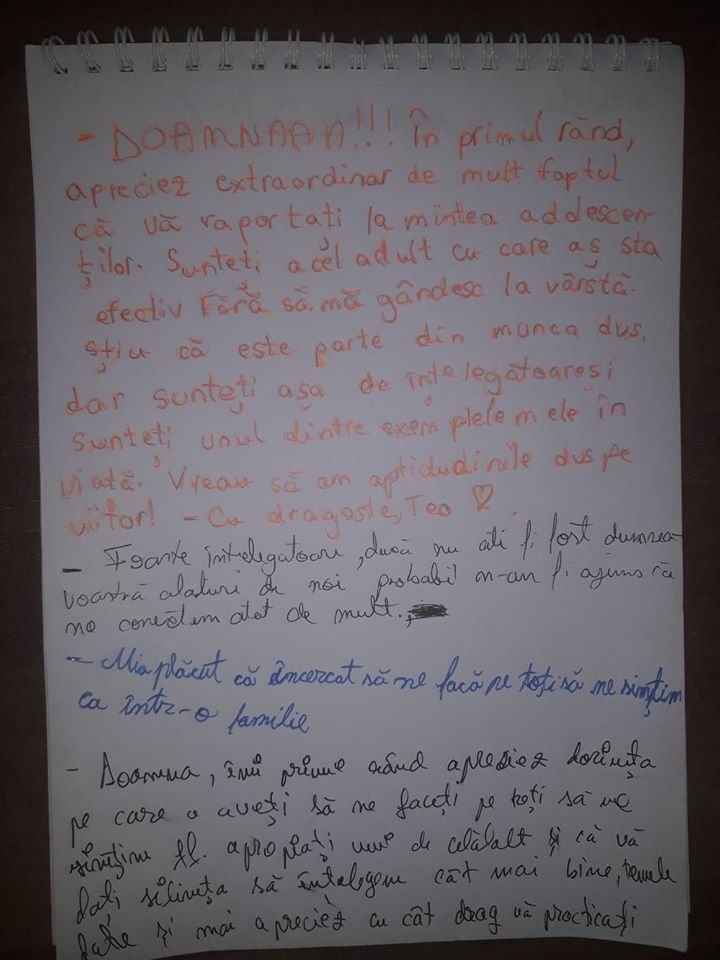 - DOAMNAAA!!! În primul rând,
apreciez extraordinar de mult faptul
că vă raportați la mintea adolescen-
ților. Sunteți acel adult cu care aș sta
efectiv fără să mă gândesc la vârstă.
știu că este parte din munca dvs,
dar sunteți așa de înțelegătoare și
sunteți unul dintre exemplele mele în
viață. Vreau să am aptidudinile dvs pe
viitor! - Cu dragoste, Teo ♡.
- Foarte întelegatoare, dacă nu ati fi fost dumnea-
voastră alaturi de noi probabil n-am fi ajuns să
ne conectem atat de mult.
- Mia plăcut că încercat să ne facă pe toți să ne simțim
ca într-o familie
- Doamna, în primul rând apreciez dorința
pe care o aveți să ne faceți pe toți să ne
simțim fff. apropiați unul de celălalt și că vă
dați silința să înțelegem cât mai bine, temele
date și mai apreciez cu cât drag vă practicați